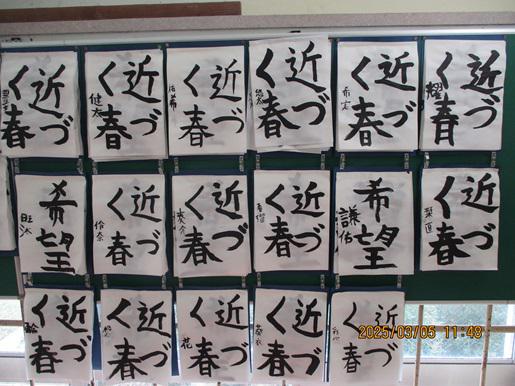 近づく春
近づく春 健太
近づく春
近づく春 悠太
近づく春
近づく春 翔
希望
近づく春 伶奈
近づく春
近づく春
希望 謙佑
近づく春
近づく春
近づく春
近づく春 花
近づく春
近づく春
2025/03/05 11:48